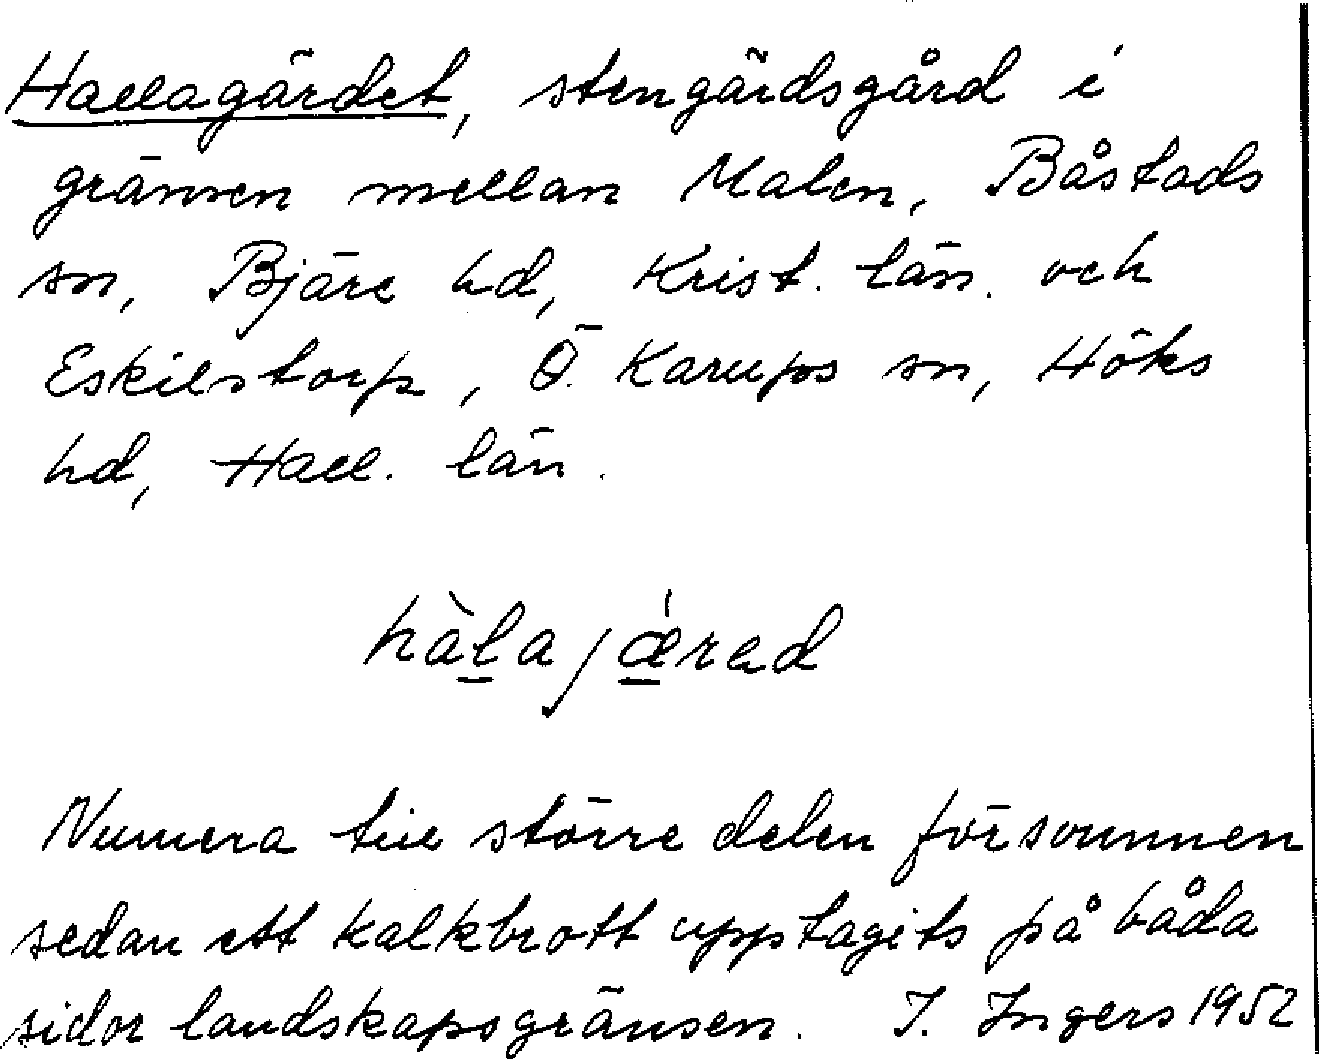 Hallagärdet, stengärdsgård i
gränsen mellan Malen, Båstads
sn, Bjäre hd, Krist. län. och
Eskilstorp, Ö. Karups sn, Höks
hd, Hall. län.
hàla/ǽrad
Numera till större delen försvunnen
sedan ett kalkbrott upptagits på båda
sidor landskapsgränsen. I. Ingers 1952